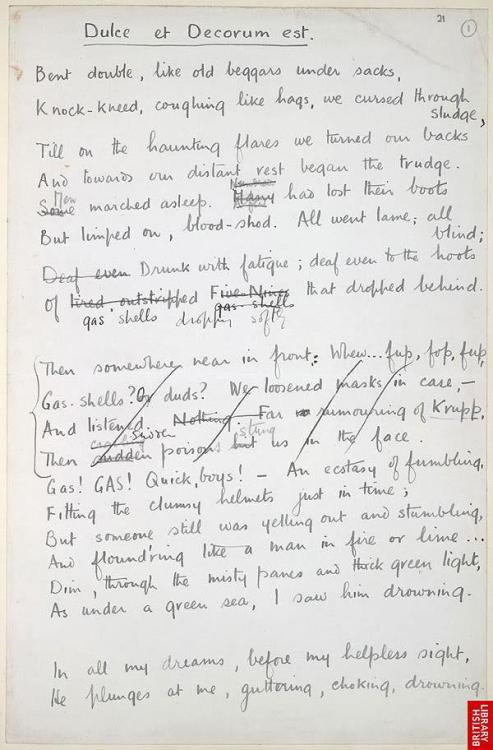 21
1
Dulce et Decorum est.
Bent double, like old beggars under sacks,
Knock-kneed, coughing like hags, we cursed through
sludge,
Till on the haunting flares we turned our backs
And towards our distant rest began the trudge.
Some Men marched asleep. Many had lost their boots
But limped on, blood-shod. All went lame; all
blind;
Deaf even Drunk with fatigue; deaf even to the hoots
of tired, outstripped Five-Nines that dropped behind.
gas shells dropping softly gas-shells
Then somewhere near in front: Whew... fup, fop, fup,
Gas-shells? Or duds? We loosened masks in case, —
And listened. Nothing. Far rumouring of Krupp.
Then sudden poisons hit us in the face.
stung
Gas! GAS! Quick, boys! — An ecstasy of fumbling,
Fitting the clumsy helmets just in time;
But someone still was yelling out and stumbling,
And flound'ring like a man in fire or lime...
Dim, through the misty panes and thick green light,
As under a green sea, I saw him drowning.
In all my dreams, before my helpless sight,
He plunges at me, guttering, choking, drowning.
BRITISH
LIBRARY